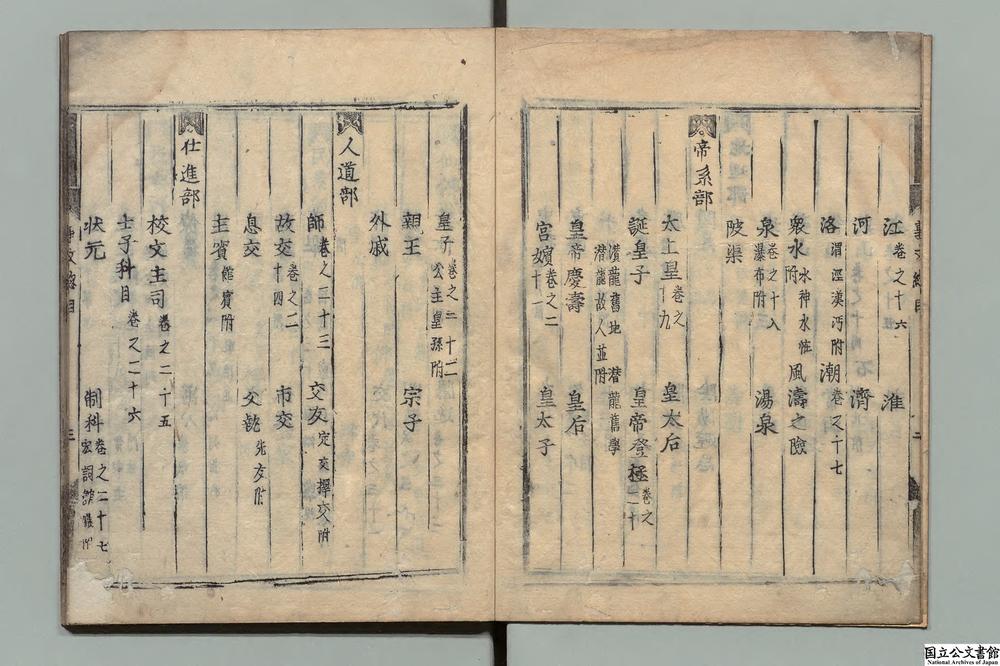 江 卷之十六 淮
河 濟
洛 渭涇漢沔附 潮 卷之十七
衆水 水神水怪附 風濤之險
泉 卷之十八 瀑布附 湯泉
陂渠
帝系部
太上皇 卷之十九 皇太后
誕皇子 皇帝登極 卷之二十
潛龍舊地 潛龍舊學 潛龍故人並附
皇帝慶壽 皇后
宮嬪 卷之二十一 皇太子
皇子 卷之二十二 公主皇孫附
親王 宗子
外戚
人道部
師 卷之二十三 交友 定交擇交附
故交 卷之二十四 市交
息交 文訛
主賓 館賓附
仕進部
校文主司 卷之二十五
士子科目 卷之二十六
状元 制科 卷之二十七 宏詞
國立公文書館
National Archives of Japan